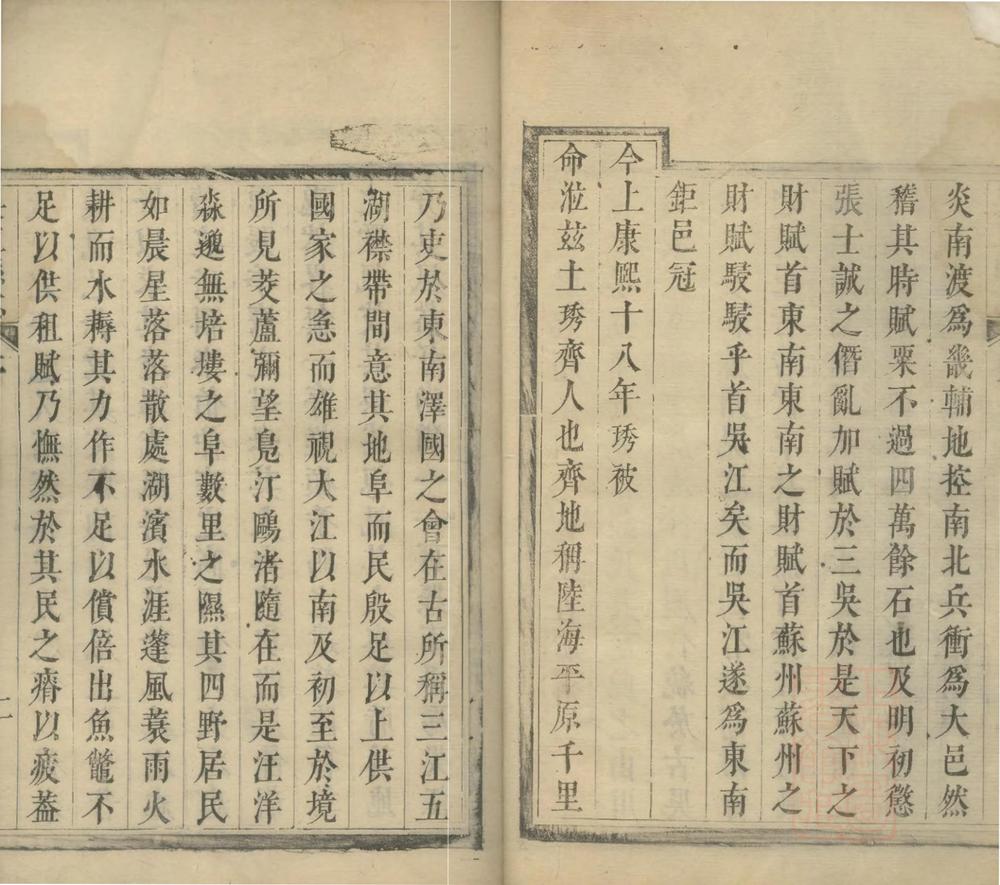 炎南渡爲畿輔地控南北兵衝爲大邑然
稽其時賦粟不過四萬餘石也及明初懲
張士誠之僭亂加賦於三吳於是天下之
財賦首東南東南之財賦首蘇州蘇州之
財賦駸駸乎首吳江矣而吳江遂爲東南
鉅邑冠
今上康熙十八年琇被
命涖玆土琇齊人也齊地稱陸海平原千里
乃吏於東南澤國之會在古所稱三江五
湖襟帶間意其地阜而民殷足以上供
國家之急而雄視大江以南及初至於境
所見茭蘆彌望鳧汀鷗渚隨在而是汪洋
淼邈無培塿之阜數里之隰其四野居民
如晨星落落散處湖濱水涯蓬風蓑雨火
耕而水耨其力作不足以償倍出魚鼈不
足以供租賦乃憮然於其民之瘠以疲蓋